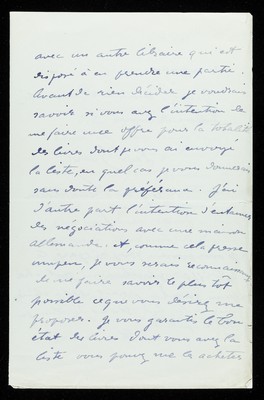 avec un autre libraire qui est
disposé à en prendre une partie.
Avant de rien décider je voudrais
savoir si vous avez l'intention de
me faire une offre pour la totalité
des livres dont je vous ai envoyé
la liste, en quel cas je vous donnerais
sans doute la préférence. J'ai
d'autre part l'intention d'entamer
des négociations avec une maison
allemande. Et, comme cela presse
un peu, je vous serais reconnaissant
de me faire savoir le plus tôt
possible ce que vous désirez me
proposer. Je vous garantis le bon
état des livres dont vous avez la
liste vous pouvez me la acheter